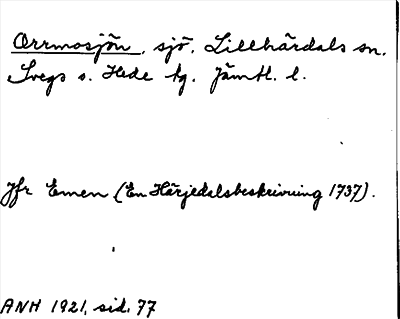 Orrmosjön, sjö, Lillhärdals sn,
Svegs o. Hede tg. Jämtl. l.
Jfr Emen (En Härjedalsbeskrivning 1737).
ANH 1921, sid. 77